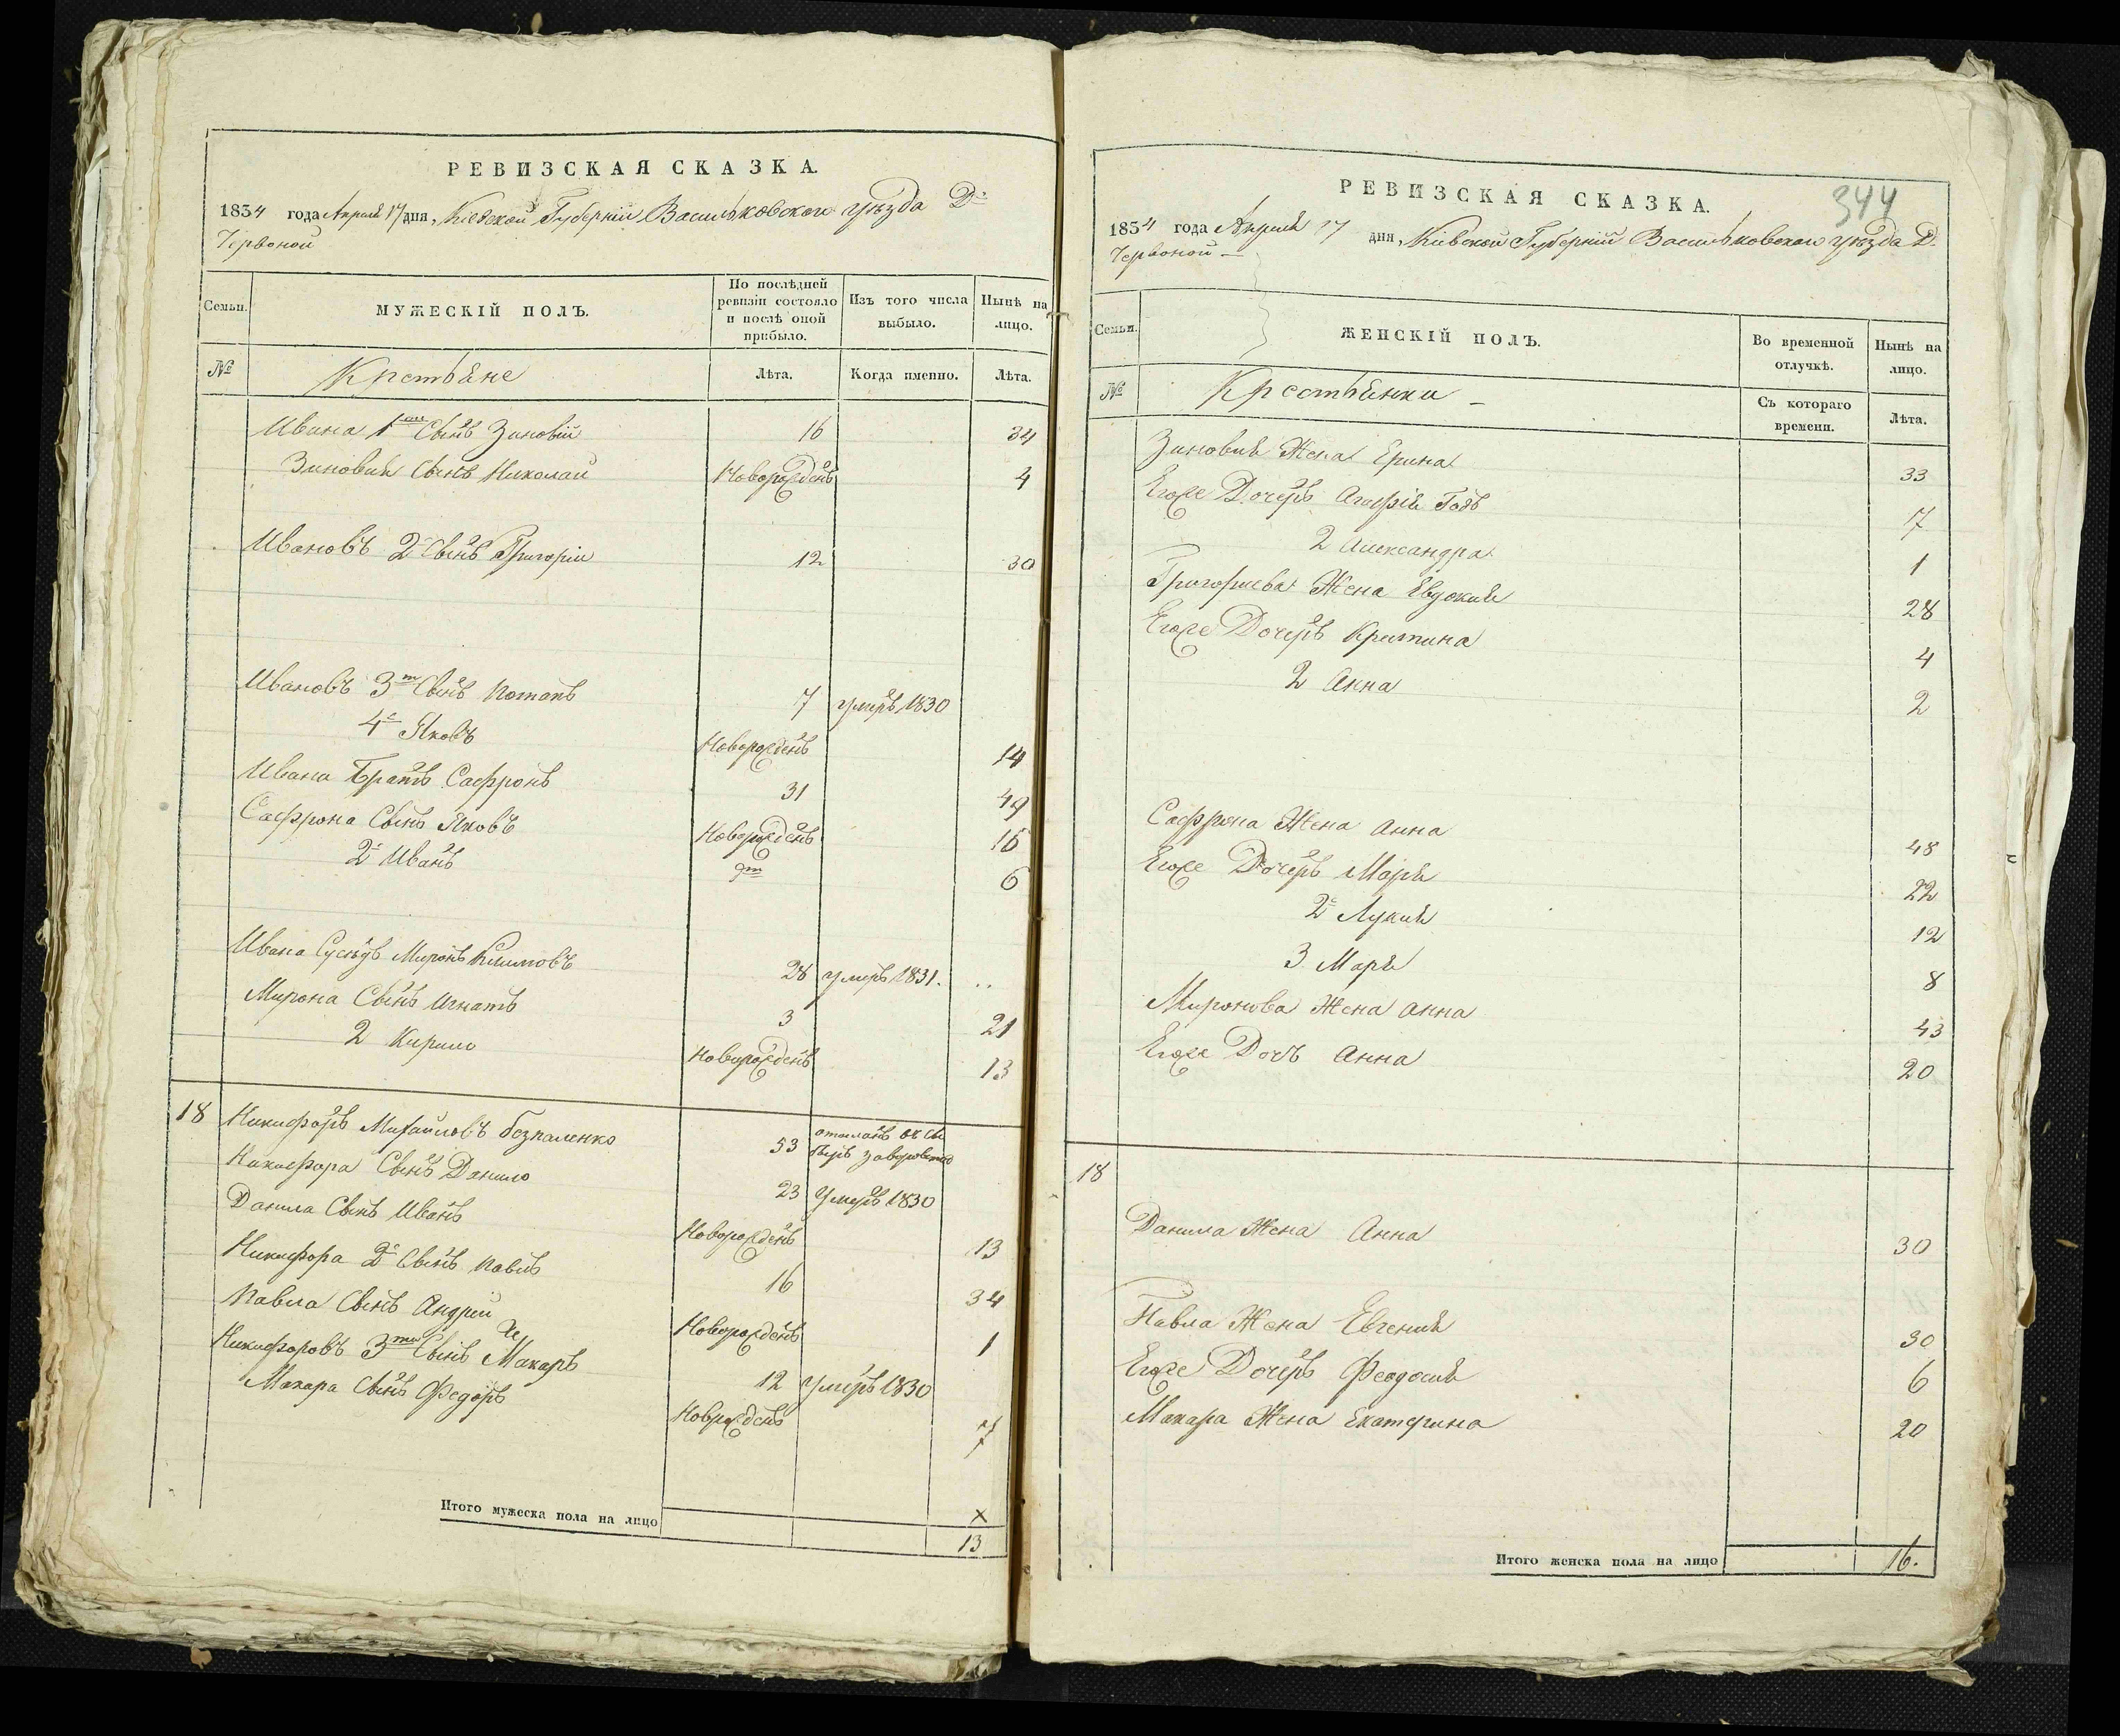 РЕВИЗСКАЯ СКАЗКА.
1834 года Априля 17 дня, Кіевской Губерніи Васильковскаго уѣзда Д.
Червоной
Семьи.
МУЖЕСКІЙ ПОЛЪ.
По послѣдней ревизіи состояло и послѣ оной прибыло.
Изъ того числа выбыло.
Нынѣ на лицо.
№
Крстьяне
Лѣта.
Когда именно.
Лѣта.
Ивана 1 Сынъ Зиновій 16 34
Зиновия Сынъ Николай Новорожденъ 4
Ивановъ 2 Сынъ Григорій 12 30
Ивановъ 3 Сынъ Потапъ 7 умеръ 1830
4 Яковъ Новорожденъ 14
Ивана Братъ Сафронъ 31 49
Сафрона Сынъ Яковъ Новорожденъ 15
2 Иванъ дт 6
Ивана Сусѣдъ Миронъ Климовъ 28 умеръ 1831.
Мирона Сынъ Игнатъ 3 21
2 Кирило Новорожденъ 13
18 Никифоръ Михайловъ Безпаленко 53
Никифора Сынъ Данило 23 умеръ 1830
Данила Сынъ Иванъ Новорожденъ 13
Никифора 2 Сынъ Павлъ 16 34
Павла Сынъ Андрей Новорожденъ 1
Никифоровъ 3 Сынъ Макаръ 12 умеръ 1830
Макара Сынъ Федоръ Новрожденъ 7
Итого мужеска пола на лицо
13
344
РЕВИЗСКАЯ СКАЗКА.
1834 года Априля 17 дня, Кіевской Губерніи Васильковскаго уѣзда Д.
Червоной
Семьи.
ЖЕНСКІЙ ПОЛЪ.
Во временной отлучкѣ.
Нынѣ на лицо.
№
Крестьянки
Съ котораго времени.
Лѣта.
Зиновия Жена Ерина 33
Егоже Дочеръ Агафія 7
2 Александра 1
Григориева Жена Евдокия 28
Егоже Дочеръ Кристина 4
2 Анна 2
Сафрона Жена Анна 48
Егоже Дочеръ Маря 22
2 Лукия 12
3 Маря 8
Миронова Жена Анна 43
Егоже Дочъ Анна 20
18
Данила Жена Анна 30
Павла Жена Евгения 30
Егоже Дочеръ Феодосия 6
Макара Жена Екатерина 20
Итого женска пола на лицо 16.